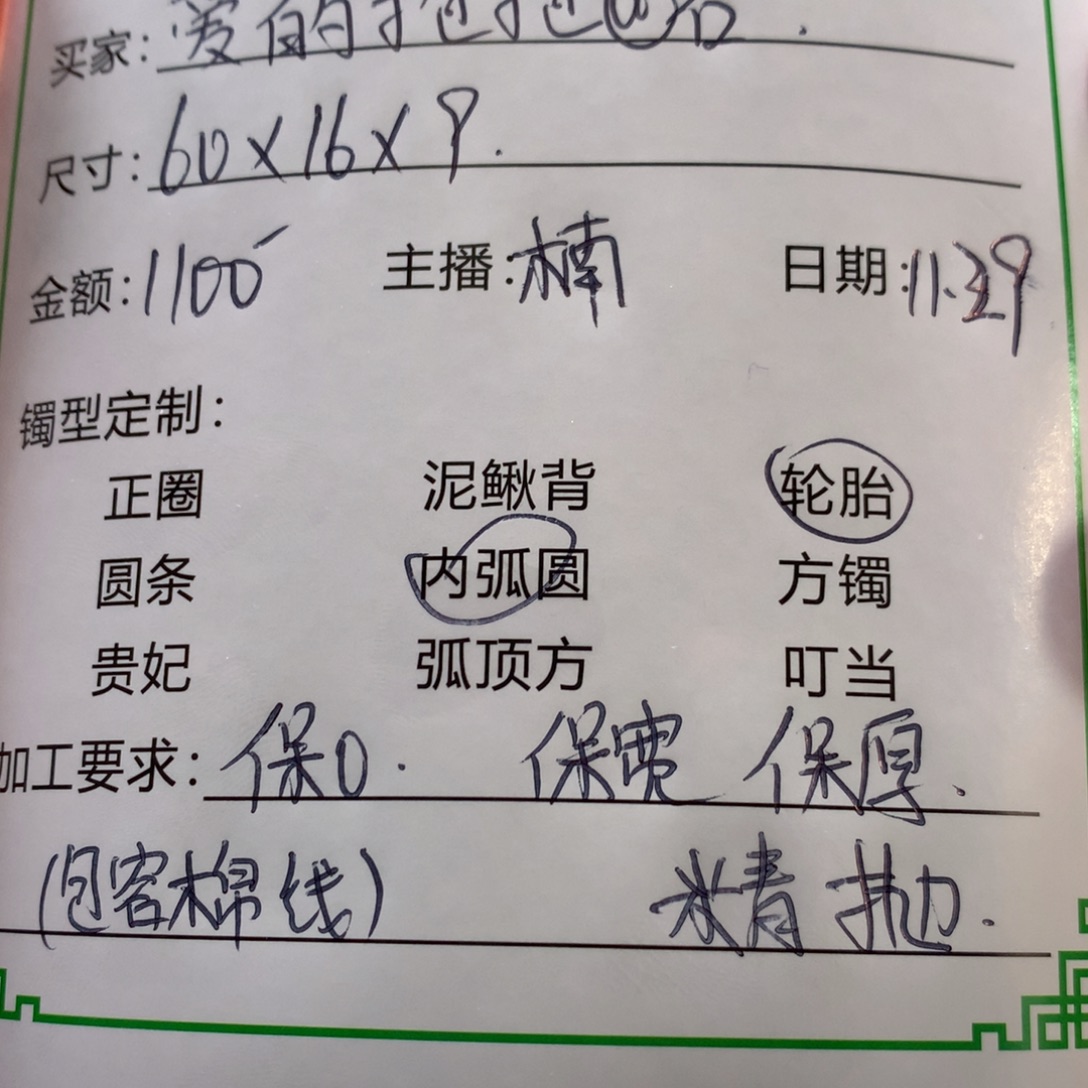 买家: 爱的抱抱@
尺寸: 60×16×9.
金额: 1100 主播: 楠 日期: 11.29
镯型定制:
正圈 泥鳅背 轮胎
圆条 内弧圆 方镯
贵妃 弧顶方 叮当
加工要求: 保0. 保宽 保厚.
(包容棉线) 精抛.